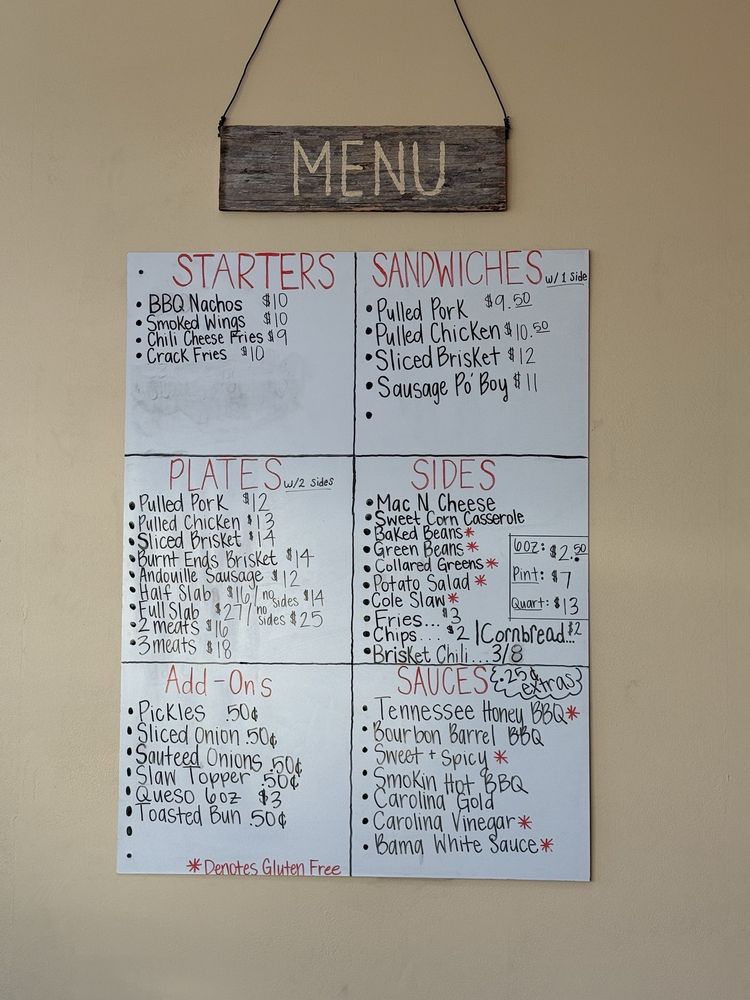 MENU
STARTERS
• BBQ Nachos $10
• Smoked Wings $10
• Chili Cheese Fries $9
• Crack Fries $10
SANDWICHES w/ 1 Side
• Pulled Pork $9.50
• Pulled Chicken $10.50
• Sliced Brisket $12
• Sausage Po' Boy $11
PLATES w/2 Sides
• Pulled Pork $12
• Pulled Chicken $13
• Sliced Brisket $14
• Burnt Ends Brisket $14
• Andouille Sausage $12
• Half Slab $16/no sides $14
• Full Slab $27/no sides $25
• 2 meats $16
• 3 meats $18
SIDES
• Mac N Cheese
• Sweet Corn Casserole
• Baked Beans*
• Green Beans*
• Collared Greens*
• Potato Salad*
• Cole Slaw*
• Fries...$3
• Chips... $2 | Cornbread...$2
• Brisket Chili...3/8
6oz: $2.50
Pint: $7
Quart: $13
Add-Ons
• Pickles .50¢
• Sliced Onion .50¢
• Sauteed Onions .50¢
• Slaw Topper .50¢
• Queso 6oz $3
• Toasted Bun .50¢
*Denotes Gluten Free
SAUCES .25¢ extras
• Tennessee Honey BBQ*
• Bourbon Barrel BBQ
• Sweet + Spicy*
• Smokin Hot BBQ
• Carolina Gold
• Carolina Vinegar*
• Bama White Sauce*